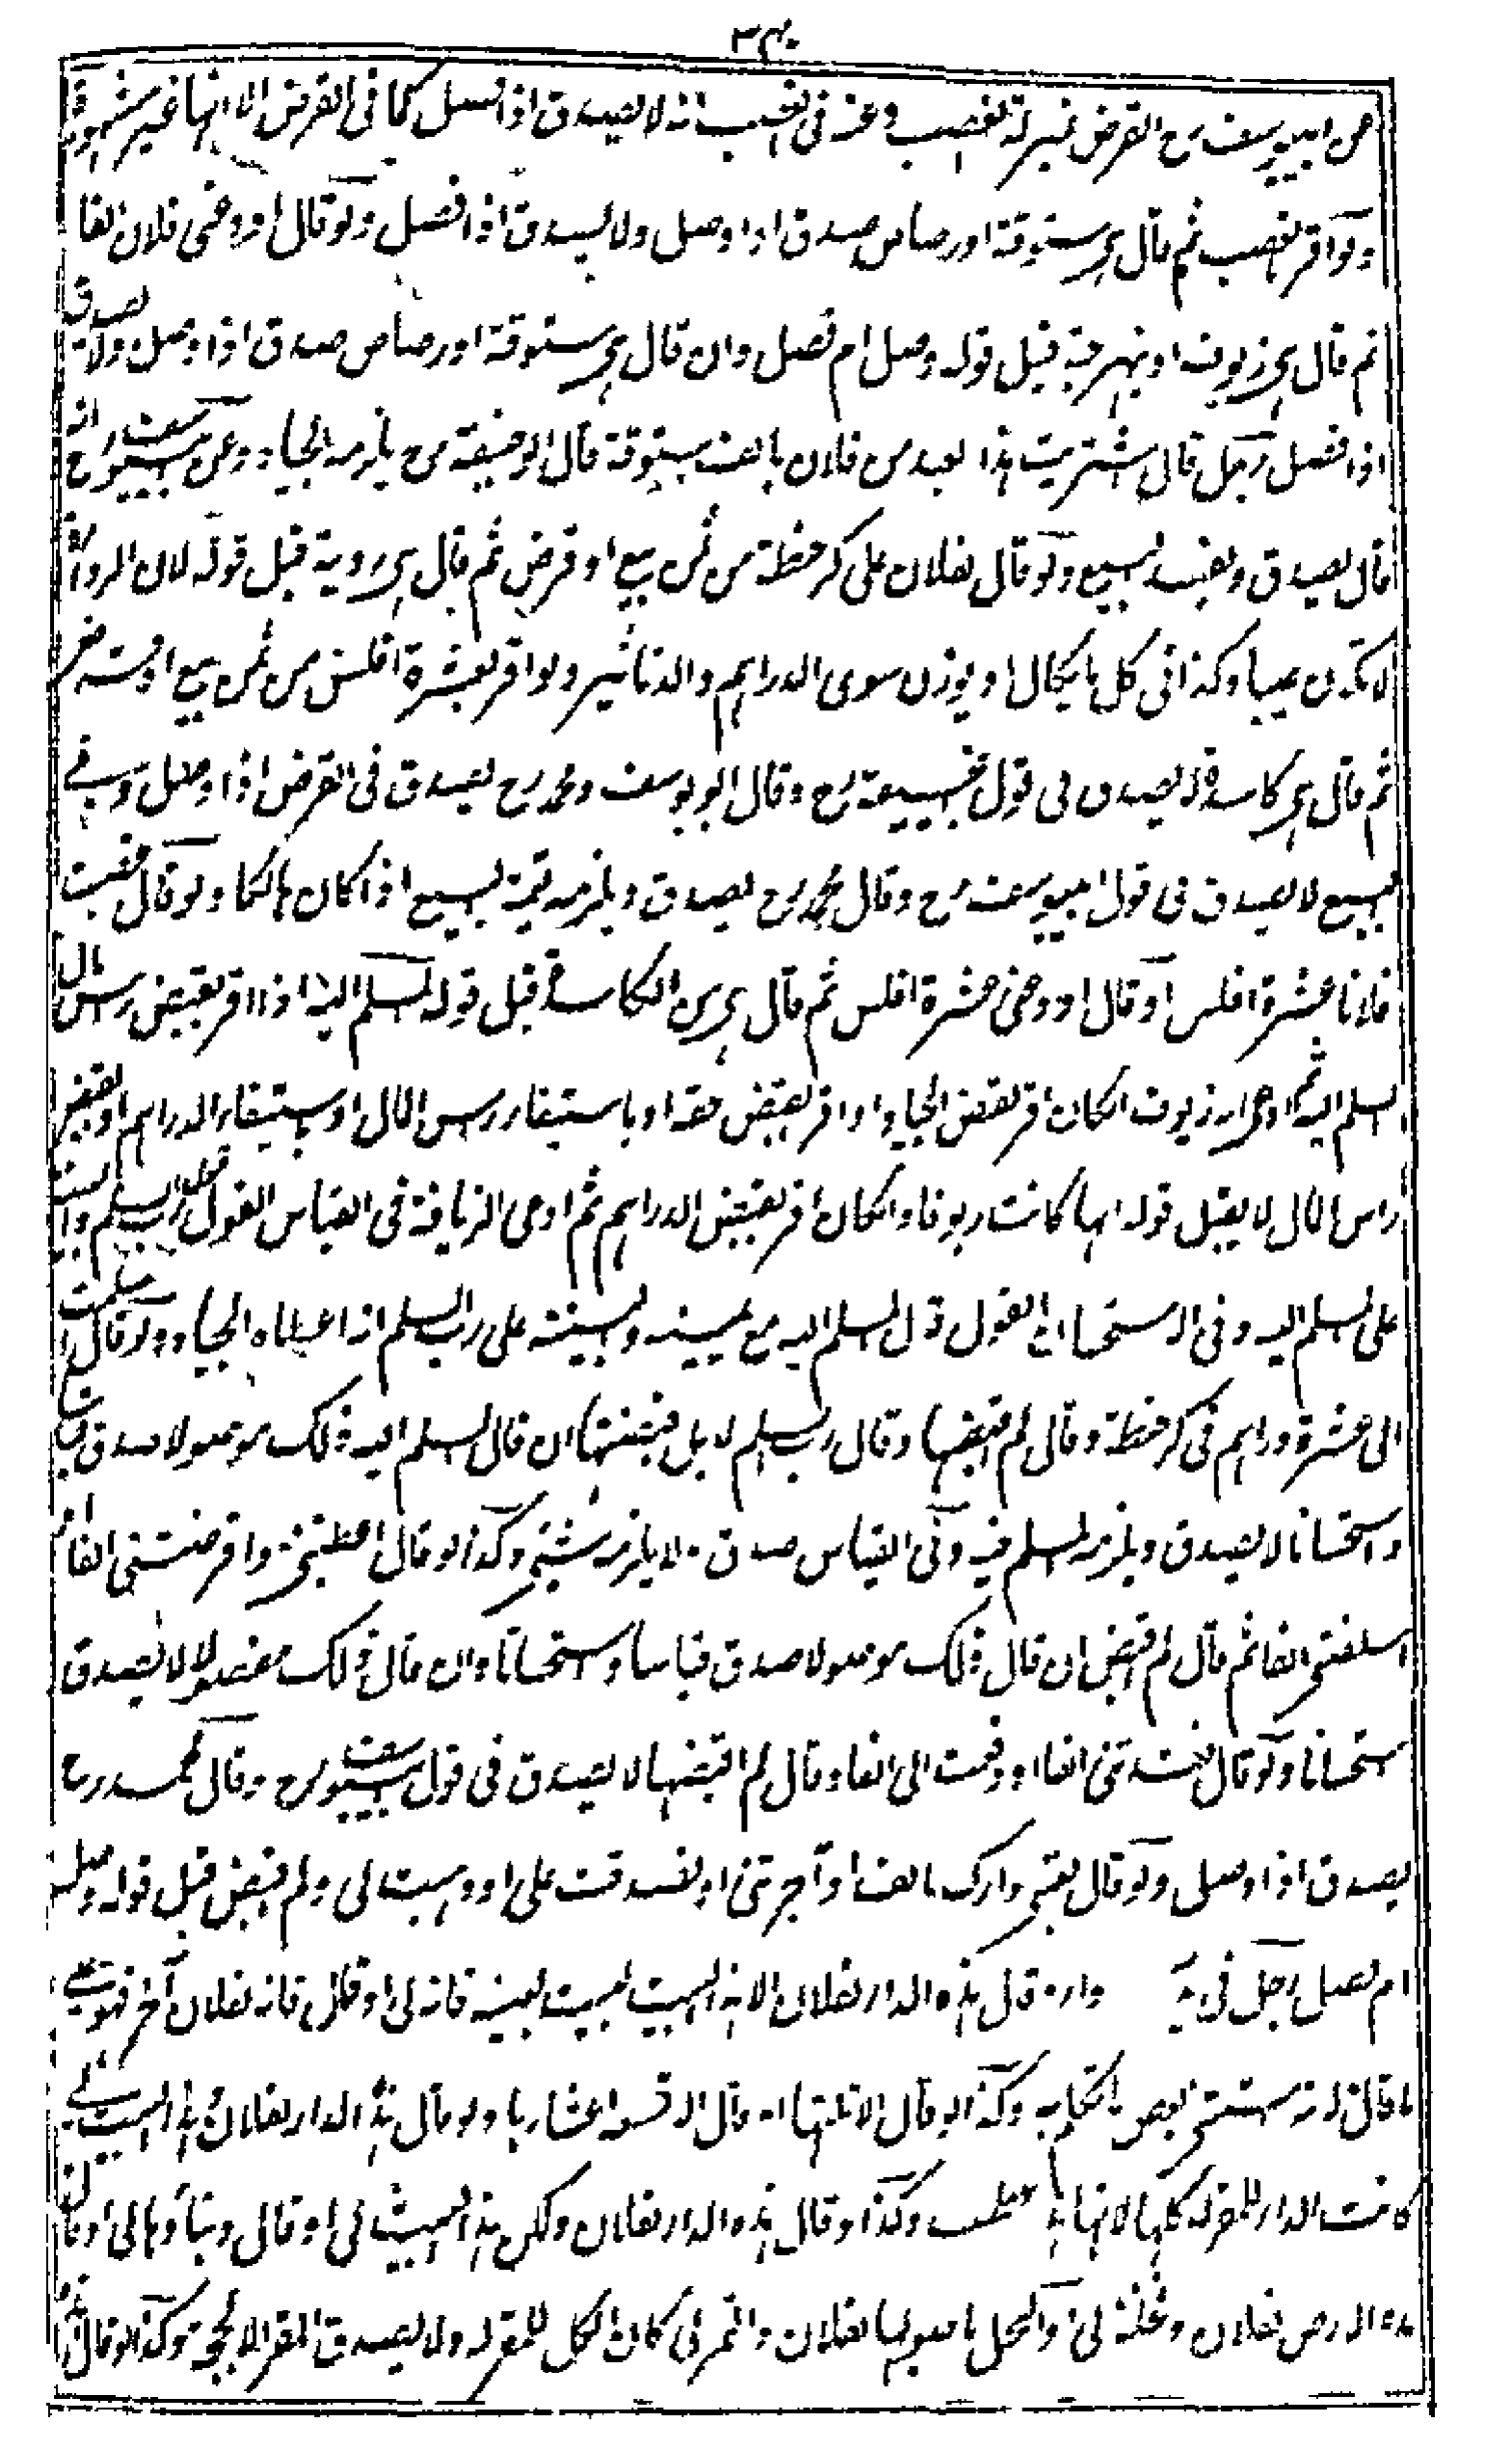 عن ابيوسف رح القرض بمنزلة الغصب وعنه في الغصب انه لا يصدق اذا فصل كما في القرض الا انها غير مشهورة
ولو اقر بغصب ثم قال هي ستوقة او رصاص صدق اذا وصل ولا يصدق اذا فصل ولو قال اودعني فلان الفا
ثم قال هي زيوف او نبهرجة قبل قوله وصل ام فصل وان قال هي ستوقة او رصاص صدق اذا وصل ولا يصدق
اذا فصل رجل قال اشتريت هذا العبد من فلان بالف ستوقة قال ابو حنيفة رح يلزمه الجياد وعن ابيوسف رح انه
قال يصدق ويفسد البيع ولو قال لفلان علي كر حنطة من ثمن بيع او قرض ثم قال هي ردية قبل قوله لان الرداءة
لا تكون عيبا وكذا في كل ما يكال او يوزن سوى الدراهم والدنانير ولو اقر بعشرة افلس من ثمن بيع او قرض
ثم قال هي كاسدة لا يصدق في قول ابيحنيفة رح وقال ابو يوسف ومحمد رح يصدق في القرض اذا وصل وفي
البيع لا يصدق في قول ابيوسف رح وقال محمد رح يصدق ويلزمه قيمة المبيع اذا كان هالكا ولو قال غصبت
فلانا عشرة افلس او قال اودعني عشرة افلس ثم قال هي من الكاسدة قبل قوله المسلم اليه اذا اقر بقبض رأس المال
المسلم اليه ثم ادعى انه زيوف ان كان اقر بقبض الجياد او اقر بقبض حقه او باستيفاء رأس المال او باستيفاء الدراهم او بقبض
رأس المال لا يقبل قوله انها كانت زيوفا وان كان اقر بقبض الدراهم ثم ادعى الزيافة في القياس القول قول رب السلم والبينة
على المسلم اليه وفي الاستحسان القول قول المسلم اليه مع يمينه والبينة على رب السلم انه اعطاه الجياد ولو قال اسلمت
الي عشرة دراهم في كر حنطة وقال لم اقبضها وقال رب السلم لا بل قبضتها ان قال المسلم اليه ذلك موصولا صدق قياسا
واستحسانا لا يصدق ويلزمه المسلم فيه وفي القياس صدق ولا يلزمه شيء وكذا لو قال اعطيتني واقرضتني الفا او
اسلفتني الفا ثم قال لم اقبض ان قال ذلك موصولا صدق قياسا واستحسانا وان قال ذلك مفصولا لا يصدق
استحسانا ولو قال نقدتني الفا او دفعت الي الفا وقال لم اقبضها لا يصدق في قول ابيوسف رح وقال محمد رح
يصدق اذا وصل ولو قال بعتني دارك بالف او آجرتني او تصدقت علي او وهبت لي ولم اقبض قبل قوله وصل
ام فصل رجل في يده دار قال هذه الدار لفلان الا هذا البيت لبيت بعينه فانه لي او قال فانه لفلان آخر فهو على
ما قال لانه استثنى بعض ما تكلم به وكذا لو قال الا ثلثها او قال الا تسعة اعشارها ولو قال هذه الدار لفلان وهذا البيت لي
كانت الدار للمقر له كلها لانها وكذا لو قال هذه الدار لفلان ولكن هذا البيت لي او قال وبناؤها لي او قال
هذه الارض لفلان ونخلها لي والنخل باصولها لفلان والثمر لي كان الكل للمقر له ولا يصدق المقر الا بحجة وكذا لو قال هذه